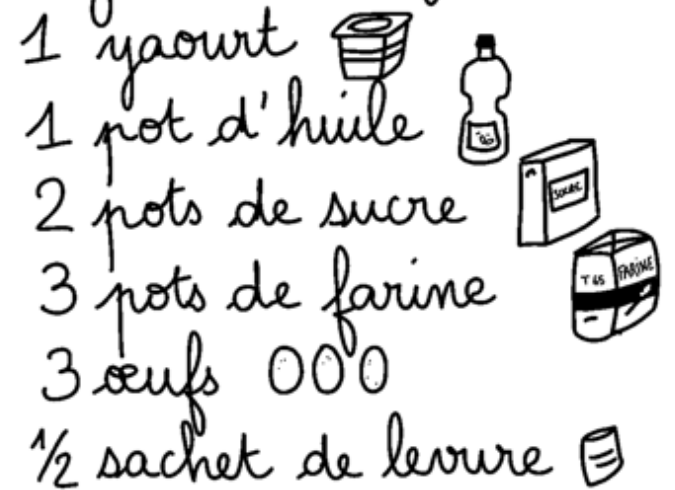 1 yaourt
1 pot d'huile
2 pots de sucre
SUCRE
3 pots de farine
T 65 FARINE
3 œufs
1/2 sachet de levure